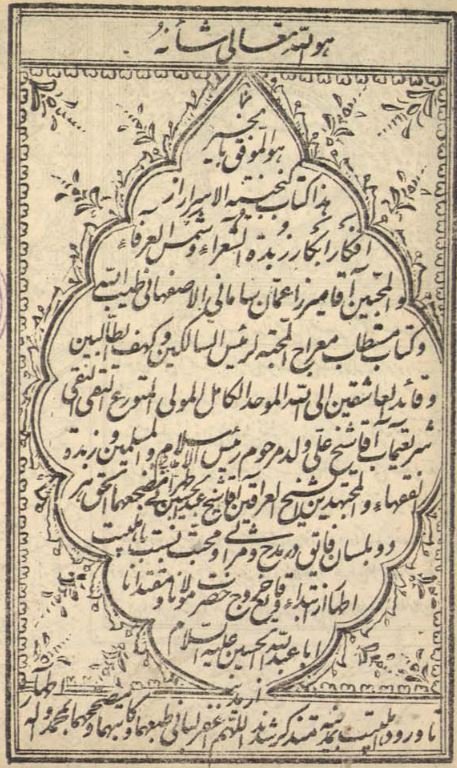 هو الله تعالی شأنه
هو الموفق بالخیر
هذا کتاب گنجینة الاسرار از
افکار ابکار زبدة الشعراء و شمس العرفاء
والمحبین آقا میرزا عمان سامانی الاصفهانی طیب الله
وکتاب مستطاب معراج المحبه لرئیس السالکین وکهف الطالبین
وقائد العاشقین الی الله الموحد الکامل المولی المتورع التقی النقی
شریعتمآب آقا شیخ علی ولد مرحوم رئیس الاسلام والمسلمین وزبدة
الفقهاء والمجتهدین شیخ العراقین آقا شیخ عبد الحسین الطهرانی مضجعهما الحق هر
دو بلسان فایق در مدح و مراثی و محبت نسبت باهلبیت
اطهار از ابتداء وقایع خروج حضرت مولانا و مقتدانا
ابا عبد الله الحسین علیه السلام
از مدینه
تا ورود اهلبیت اطهار بمدینه متذکر شدند اللهم اغفر لبانی طبعهما وکاتبهما ومصححهما بمحمد وآله